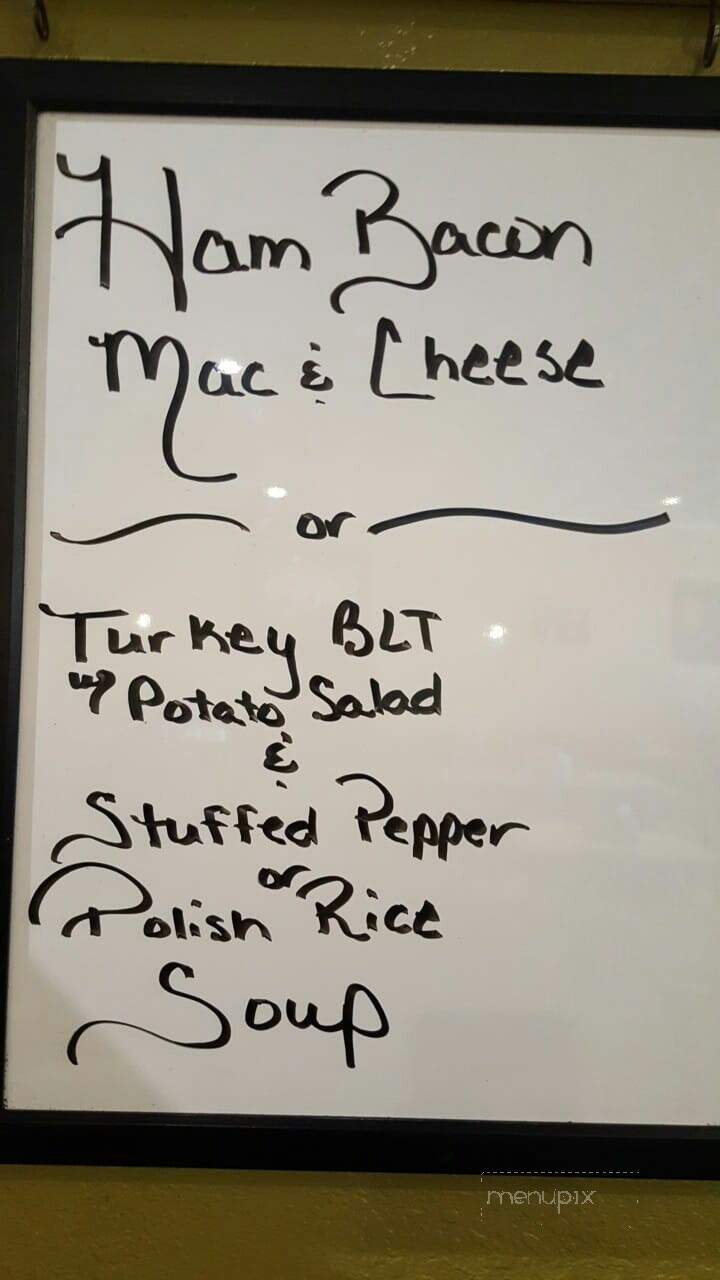 Ham Bacon
Mac & Cheese
or
Turkey BLT
w/ Potato Salad
&
Stuffed Pepper
or
Polish Rice
Soup
menupix